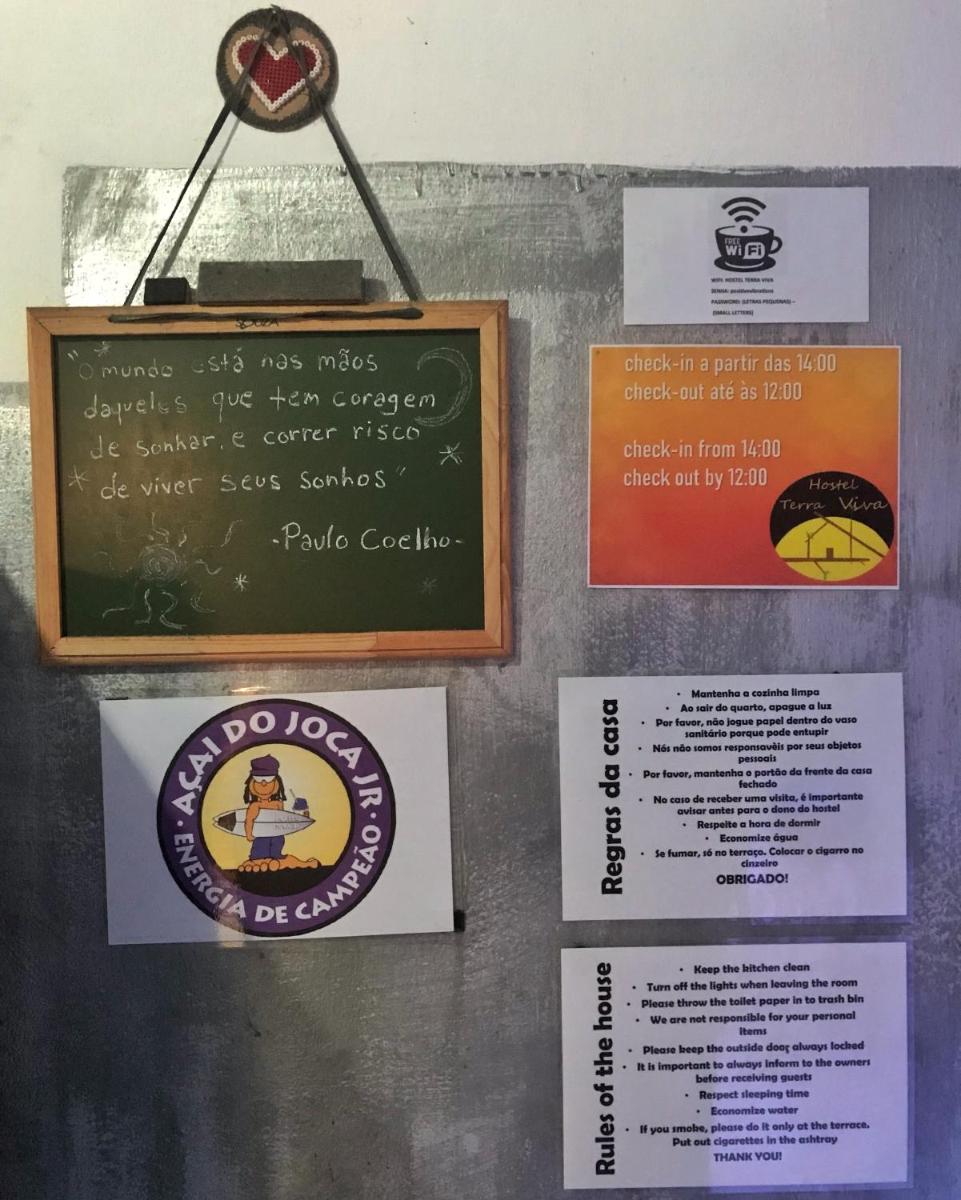 SOUZA
"O mundo está nas mãos
daqueles que tem coragem
de sonhar, e correr risco
de viver seus sonhos"
-Paulo Coelho-
FREE
WiFi
WIFI: HOSTEL TERRA VIVA
SENHA: positivevibrations
PASSWORD: (LETRAS PEQUENAS) –
(SMALL LETTERS)
check-in a partir das 14:00
check-out até às 12:00
check-in from 14:00
check out by 12:00
Hostel
Terra Viva
· AÇAI DO JOCA JR ·
ENERGIA DE CAMPEÃO
Regras da casa
• Mantenha a cozinha limpa
• Ao sair do quarto, apague a luz
• Por favor, não jogue papel dentro do vaso
sanitário porque pode entupir
• Nós não somos responsavèis por seus objetos
pessoais
• Por favor, mantenha o portão da frente da casa
fechado
• No caso de receber uma visita, é importante
avisar antes para o dono do hostel
• Respeite a hora de dormir
• Economize água
• Se fumar, só no terraço. Colocar o cigarro no
cinzeiro
OBRIGADO!
Rules of the house
• Keep the kitchen clean
• Turn off the lights when leaving the room
• Please throw the toilet paper in to trash bin
• We are not responsible for your personal
items
• Please keep the outside door always locked
• It is important to always inform to the owners
before receiving guests
• Respect sleeping time
• Economize water
• If you smoke, please do it only at the terrace.
Put out cigarettes in the ashtray
THANK YOU!